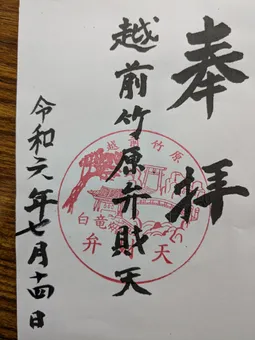 奉拝
越前竹原弁財天
令和元年七月十四日
越前竹原
白竜
弁天